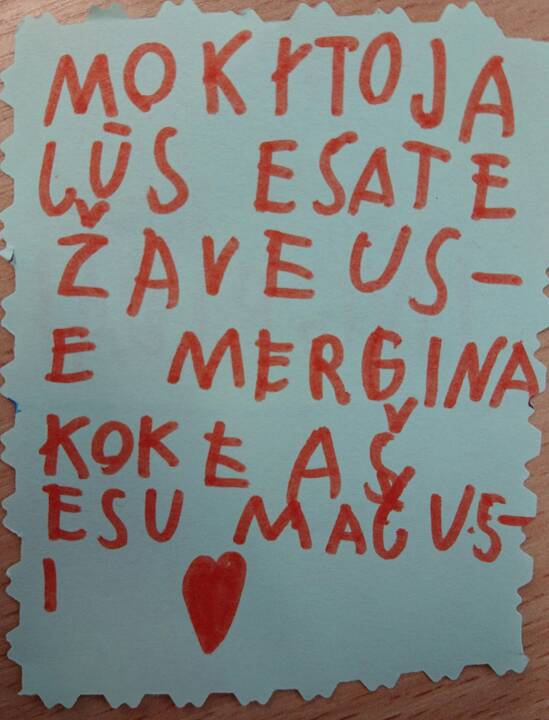 MOKŁTOJA
LŪS ESATE
ŽAVEUS-
E MERGINA
KOKE AŠ
ESU MAČUS-
I